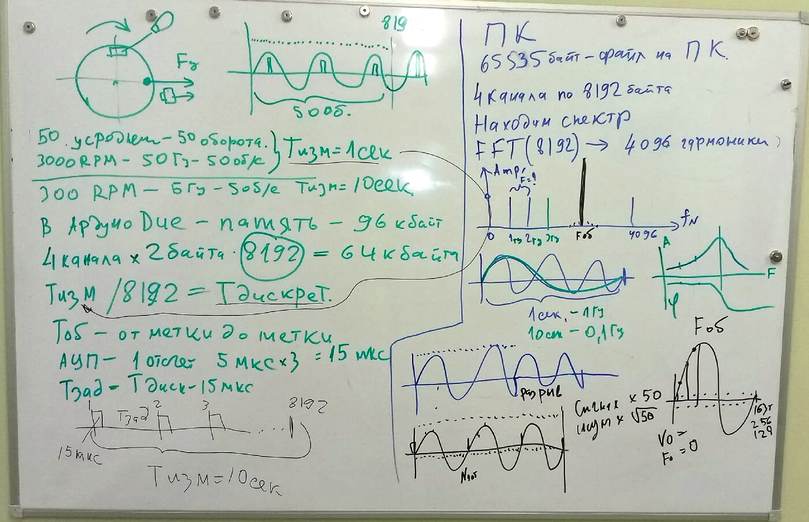 Fу
819
50 об.
50 усреднен - 50 оборота.
3000 RPM - 50 Гц - 50 об/с
Тизм = 1 сек
300 RPM - 5 Гц - 5 об/с Тизм = 10 сек
В Ардуно Due - память - 96 кбайт
4 канала × 2 байта · 8192 = 64 кбайта
Тизм / 8192 = Тдискрет.
Тоб - от метки до метки
АЦП - 1 отсчет 5 мкс × 3 = 15 мкс
Тзад = Тдиск - 15 мкс
1 Тзад 2 3 8192
15 мкс
Тизм = 10 сек
ПК
65535 байт - файл на ПК.
4 канала по 8192 байта
Находим спектр
FFT (8192) → 4096 гармоники
Ампл
0 1гц 2гц 3гц Fоб 4096 fN
A
F
φ
1 сек. - 1 Гц
10 сек - 0,1 Гц
Fоб
разрыв
Сигнал × 50
шум × √50
Nоб
V0 =
F0 = 0
256
129